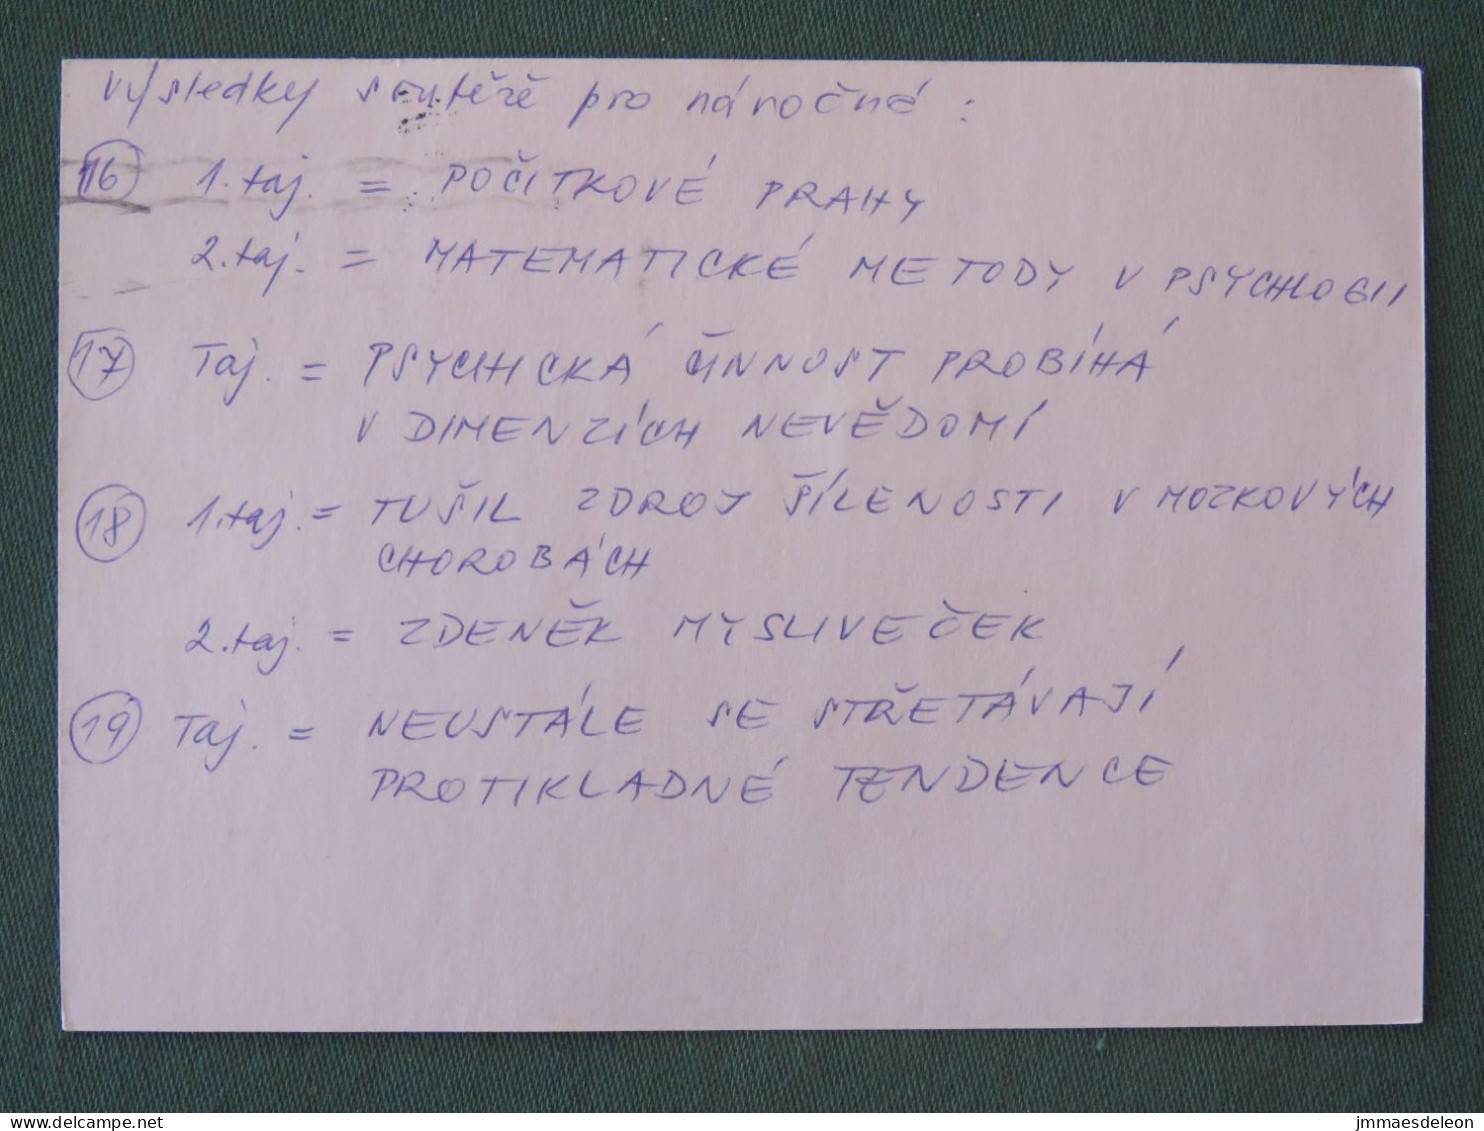 Výsledky soutěžě pro náročné :
16 1. taj. = POČITKOVÉ PRAHY
2. taj. = MATEMATICKÉ METODY V PSYCHLOGII
17 Taj. = PSYCHICKÁ ČINNOST PROBÍHÁ
V DIMENZÍCH NEVĚDOMÍ
18 1. taj. = TUŠIL ZDROJ ŠÍLENOSTI V MOZKOVÝCH
CHOROBÁCH
2. taj. = ZDENĚK MYSLIVEČEK
19 Taj. = NEUSTÁLE SE STŘETÁVAJÍ
PROTIKLADNÉ TENDENCE
delcampe.net
jmmaesdeleon